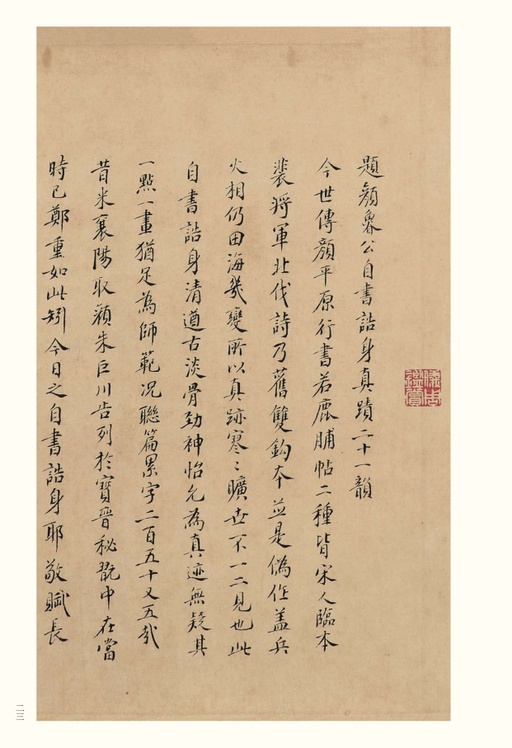 題顏魯公自書誥身真蹟二十一韻
今世傳顏平原行書若鹿脯帖二種皆宋人臨本
裴將軍北伐詩乃舊雙鉤本並是偽作蓋兵
火相仍田海幾變所以真跡寥〻曠世不一二見也此
自書誥身清遒古淡骨勁神怡允為真迹無疑其
一點一畫猶足為師範況聯篇累字二百五十又五哉
昔米襄陽收顏朱巨川告列於寶晉秘翫中在當
時已鄭重如此矧今日之自書誥身耶敬賦長
二三